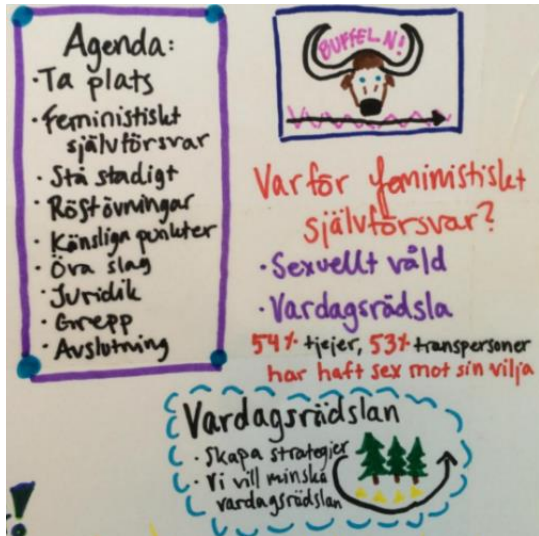 Agenda:
· Ta plats
· Feministiskt
självförsvar
· Stå stadigt
· Röstövningar
· Känsliga punkter
· Öva slag
· Juridik
· Grepp
· Avslutning
BUFFELN!
Varför feministiskt
självförsvar?
· Sexuellt våld
· Vardagsrädsla
54% tjejer, 53% transpersoner
har haft sex mot sin vilja
Vardagsrädslan
· Skapa strategier
· Vi vill minska
vardagsrädslan
!